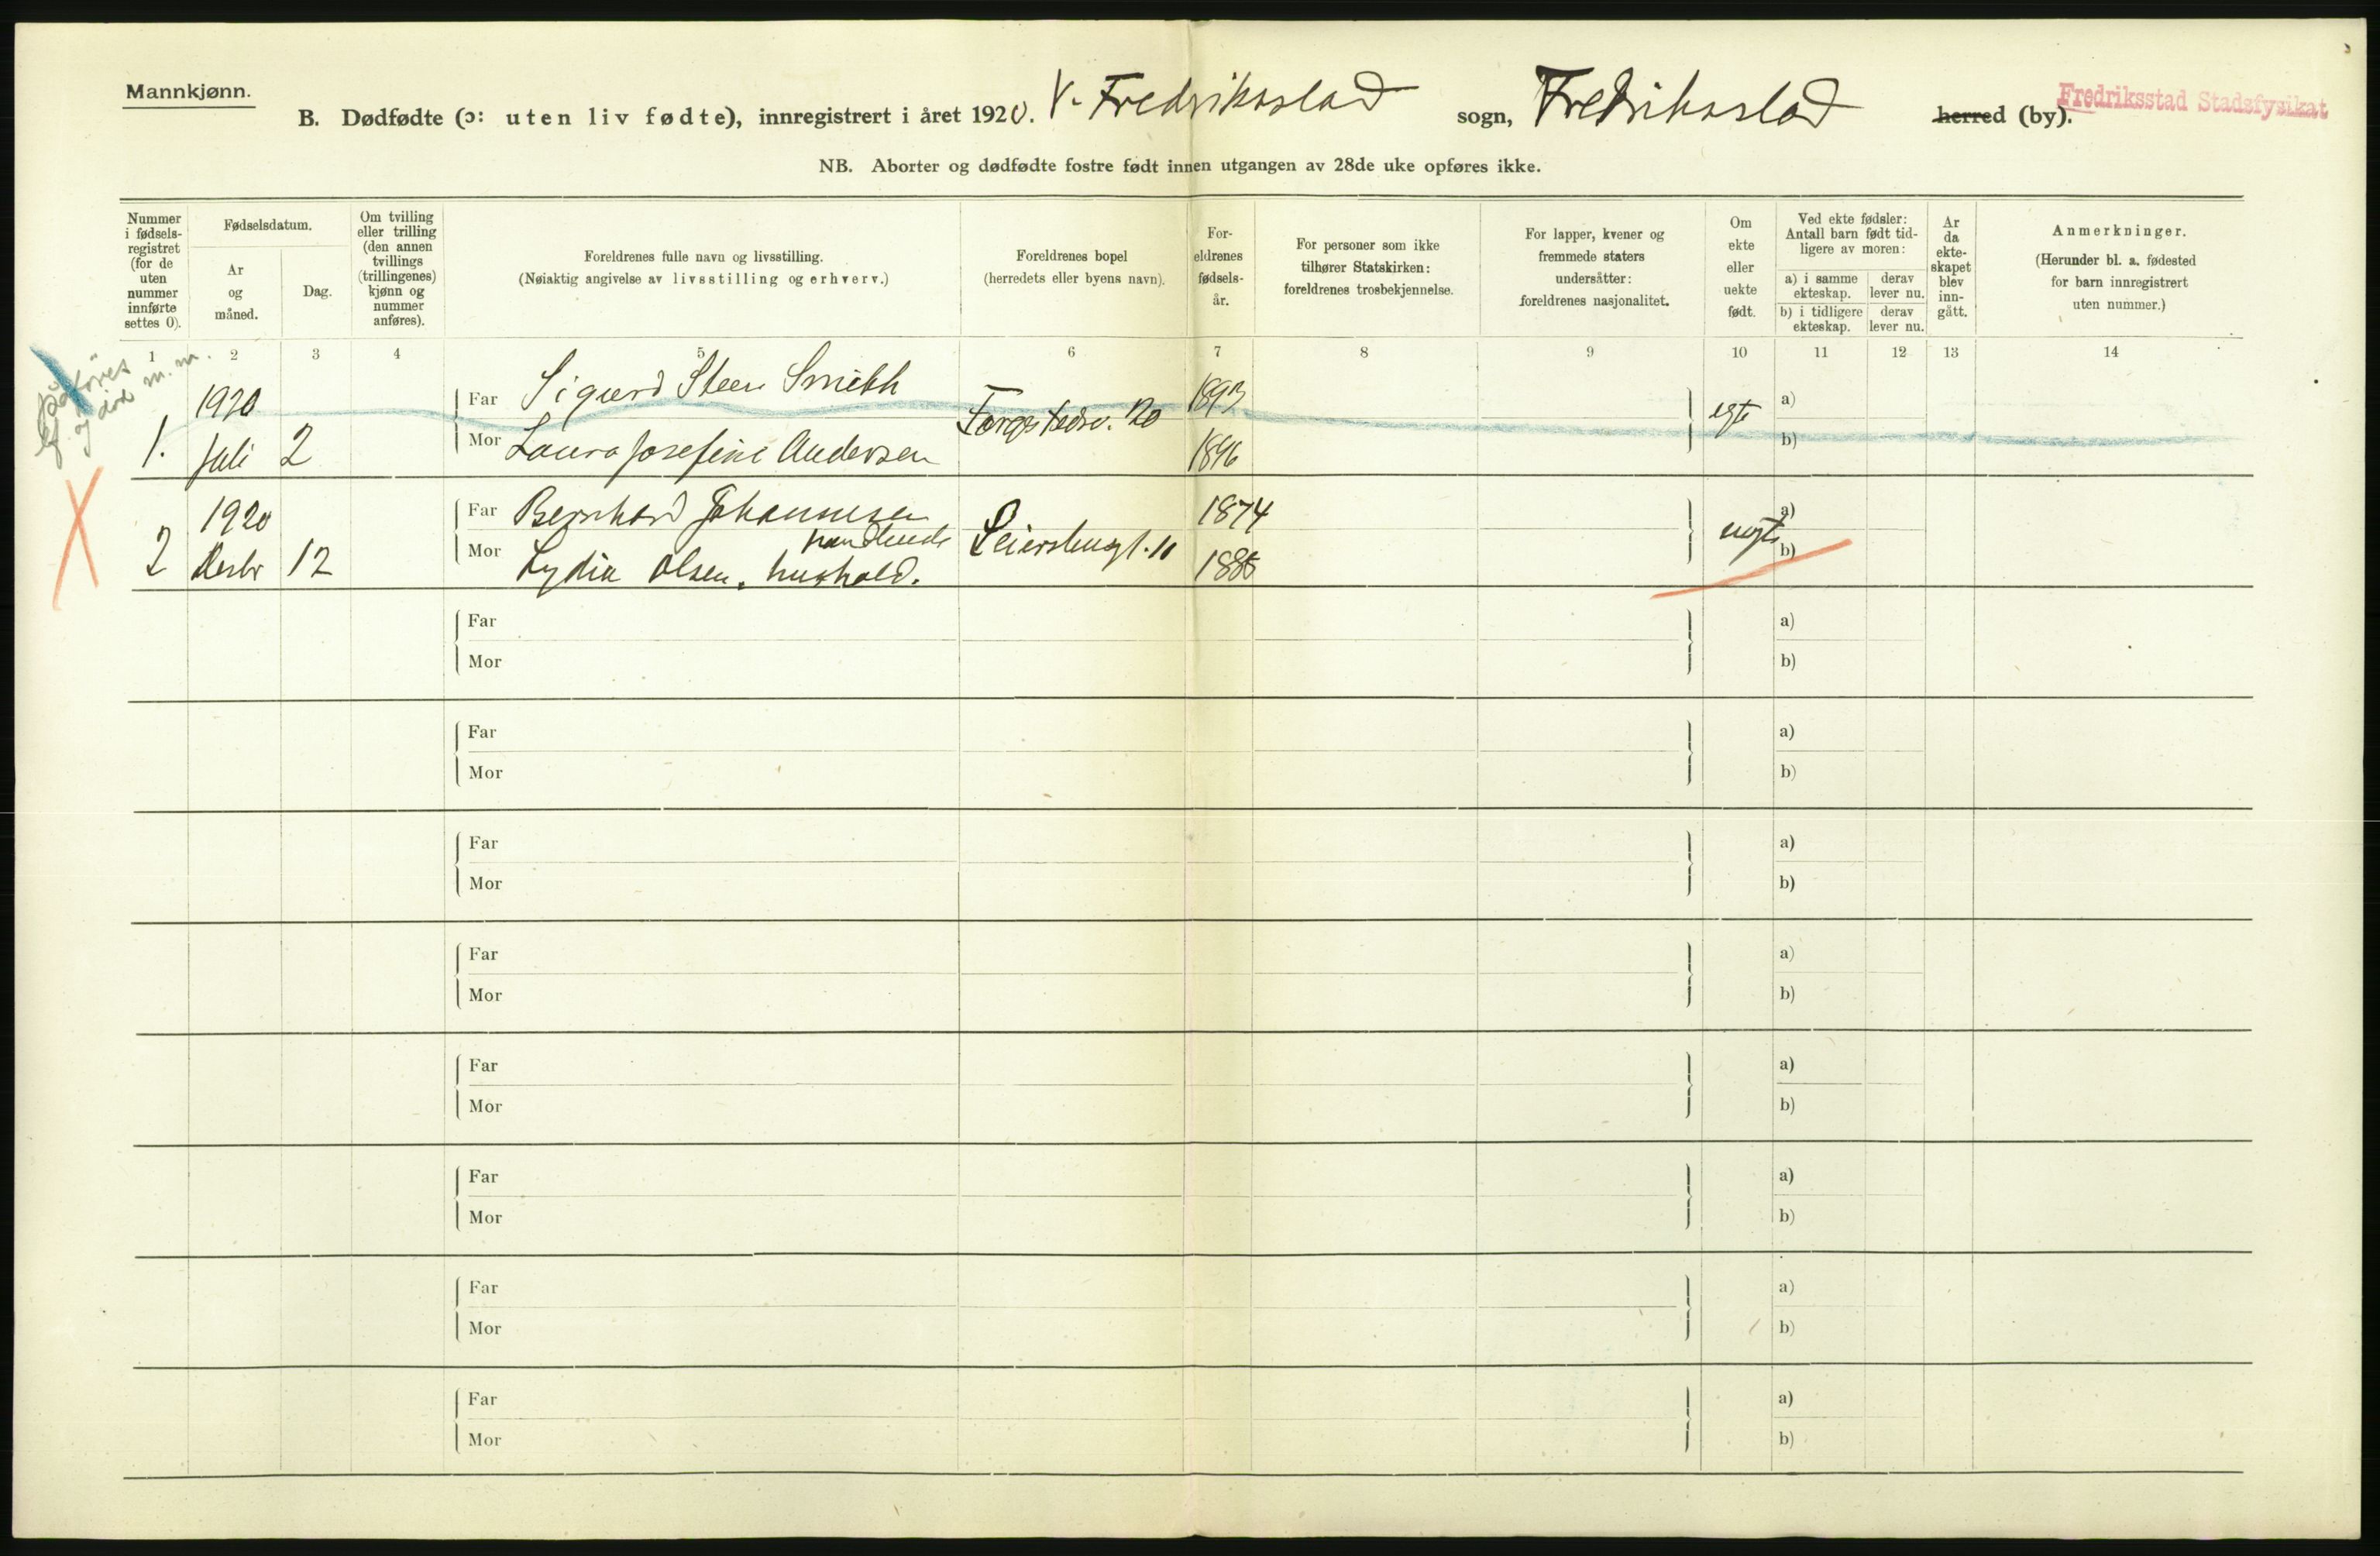 Mannkjønn.
B. Dødfødte (ɔ: uten liv fødte), innregistrert i året 1920. V. Fredriksstad sogn, Fredriksstad herred (by).
Fredriksstad Stadsfysikat
NB. Aborter og dødfødte fostre født innen utgangen av 28de uke opføres ikke.
Nummer i fødsels-registret (for de uten nummer innførte settes 0).
Fødselsdatum.
Ar og måned.
Dag.
Om tvilling eller trilling (den annen tvillings (trillingenes) kjønn og nummer anføres).
Foreldrenes fulle navn og livsstilling.
(Nøiaktig angivelse av livsstilling og erhverv.)
Foreldrenes bopel
(herredets eller byens navn).
For-eldrenes fødsels-år.
For personer som ikke tilhører Statskirken: foreldrenes trosbekjennelse.
For lapper, kvener og fremmede staters undersåtter: foreldrenes nasjonalitet.
Om ekte eller uekte født.
Ved ekte fødsler: Antall barn født tid-ligere av moren:
a) i samme ekteskap.
derav lever nu.
b) i tidligere ekteskap.
derav lever nu.
Ar da ekte-skapet blev inn-gått.
Anmerkninger.
(Herunder bl. a. fødested for barn innregistrert uten nummer.)
1 2 3 4 5 6 7 8 9 10 11 12 13 14
1920
Far Sigurd Steen Smith
1893
a)
1. Juli 2
Mor Laura Josefine Andersen
20
1896
egte
b)
1920
Far Bernhard Johannesen
handlende
1874
a)
2 Desbr 12
Mor Lydia Olsen. hushold.
uegte
b)
Far
a)
Mor
b)
Far
a)
Mor
b)
Far
a)
Mor
b)
Far
a)
Mor
b)
Far
a)
Mor
b)
Far
a)
Mor
b)
Far
a)
Mor
b)
Far
a)
Mor
b)